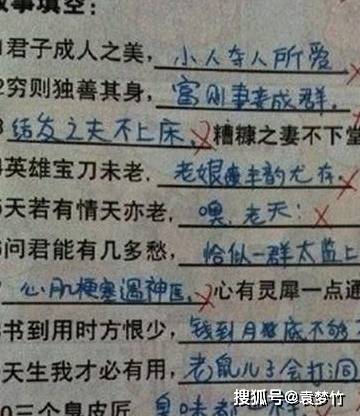 填空：
君子成人之美，小人夺人所爱
穷则独善其身，富则妻妾成群
结发之夫不上床，糟糠之妻不下堂
英雄宝刀未老，老娘丰韵尤存
天若有情天亦老，噢，老天：
问君能有几多愁，恰似一群太监上
心肌梗塞遇神医，心有灵犀一点通
书到用时方恨少，钱到月底不够
天生我才必有用，老鼠儿子会打洞
三个臭皮匠，臭味
搜狐号@袁梦竹